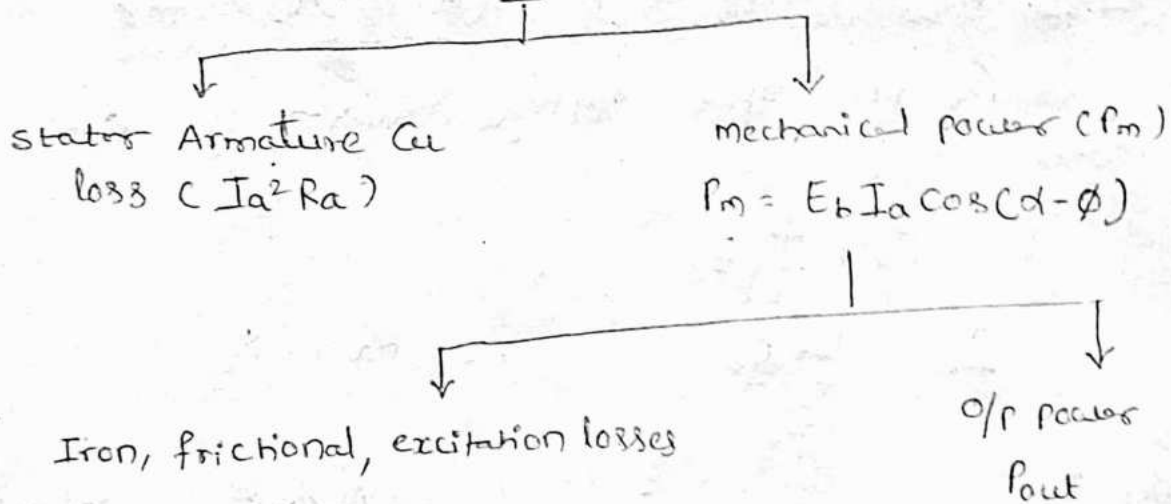 stator Armature Cu
loss ( Ia² Ra )
mechanical power (Pm)
Pm = Eb Ia Cos(α-ϕ)
Iron, frictional, excitation losses
O/P power
Pout